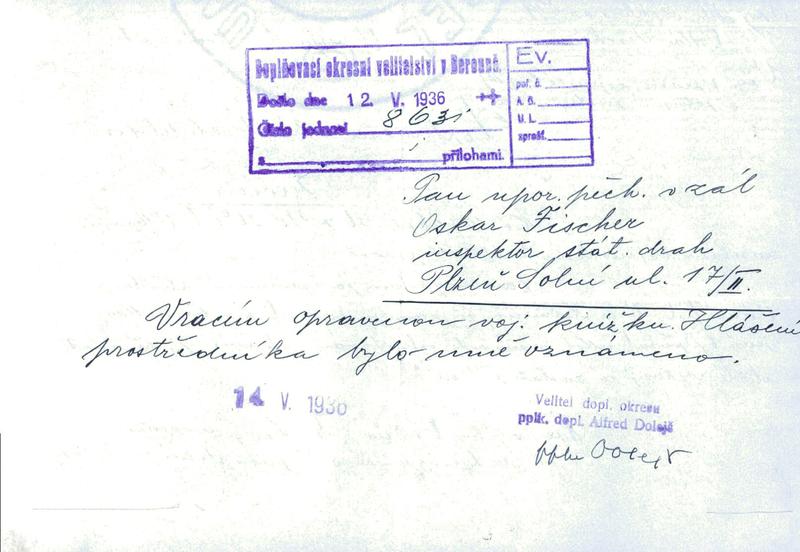 Doplňovací okresní velitelství v Berouně.
Došlo dne 12. V. 1936
Číslo jednací 8631
s přílohami.
Ev.
poř. č.
A. S.
U. I.
zprošť.
Pan npor. pěch. v zál
Oskar Fischer
inspektor stát. drah
Plzeň Solní ul. 17/II.
Vracím opravenou voj. knížku. Hlášení
prostředníka bylo mně oznámeno.
14 V. 1936
Velitel dopl. okresu
pplk. dopl. Alfred Dolejš
pplk Dolejš